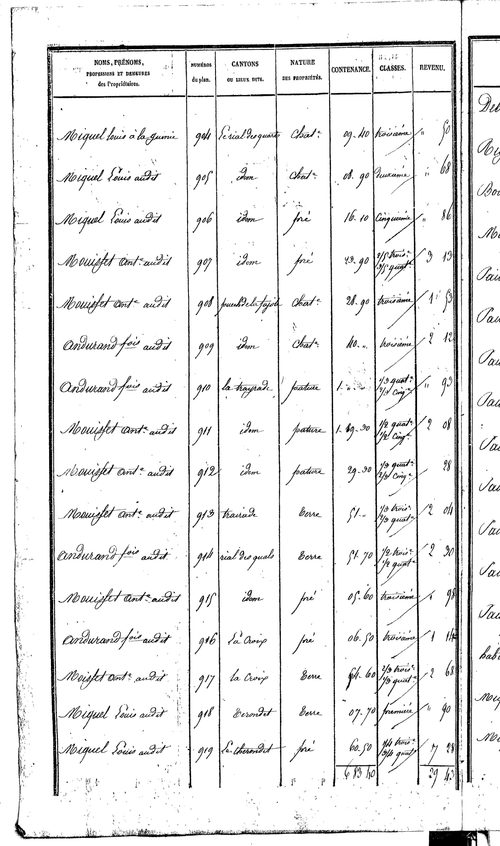 NOMS, PRÉNOMS, PROFESSIONS ET DEMEURES des Propriétaires. NUMÉROS du plan. CANTONS OU LIEUX DITS. NATURE DES PROPRIÉTÉS. CONTENANCE. CLASSES. REVENU.
Miquel Louis à la 904 chat.ⁿ 09.40 troisième " 50
Miquel Louis audit 905 idem chat.ⁿ 08.90 deuxième " 68
Miquel Louis audit 906 idem pré 16.10 cinquième " 86
Mouisset ant.ᵉ audit 907 idem pré 23.90 2/5 trois.ᵉ 3/5 quat.ᵉ 3 13
Mouisset ant.ᵉ audit 908 chat.ⁿ 28.90 troisième 1 53
Andurand fois audit 909 idem chat.ⁿ 40. " troisième 2 12
Andurand fois audit 910 la trayrade pature 1. 1/3 quat.ᵉ 2/3 cinq.ᵉ " 93
Mouisset ant.ᵉ audit 911 idem pature 1.69.30 1/2 quat.ᵉ 1/2 cinq.ᵉ 2 08
Mouisset ant.ᵉ audit 912 idem pature 29.30 1/3 quat.ᵉ 2/3 cinq.ᵉ 28
Mouisset ant.ᵉ audit 913 trairade terre 51. " 1/3 trois.ᵉ 2/3 quat.ᵉ 2 04
Andurand fois audit 914 rial des quals terre 51.70 1/2 trois.ᵉ 1/2 quat.ᵉ 2 30
Mouisset ant.ᵉ audit 915 idem pré 05.60 troisième 98
Andurand fois audit 916 La Croix pré 06.50 troisième 1 14
Moisset ant.ᵉ audit 917 la Croix terre 64.60 2/3 trois.ᵉ 1/3 quat.ᵉ 2 68
Miquel Louis audit 918 terondet terre 07.70 première " 90
Miquel Louis audit 919 Le therondet pré 60.50 1/4 trois.ᵉ 3/4 quat.ᵉ 7 28
683 40 29 43